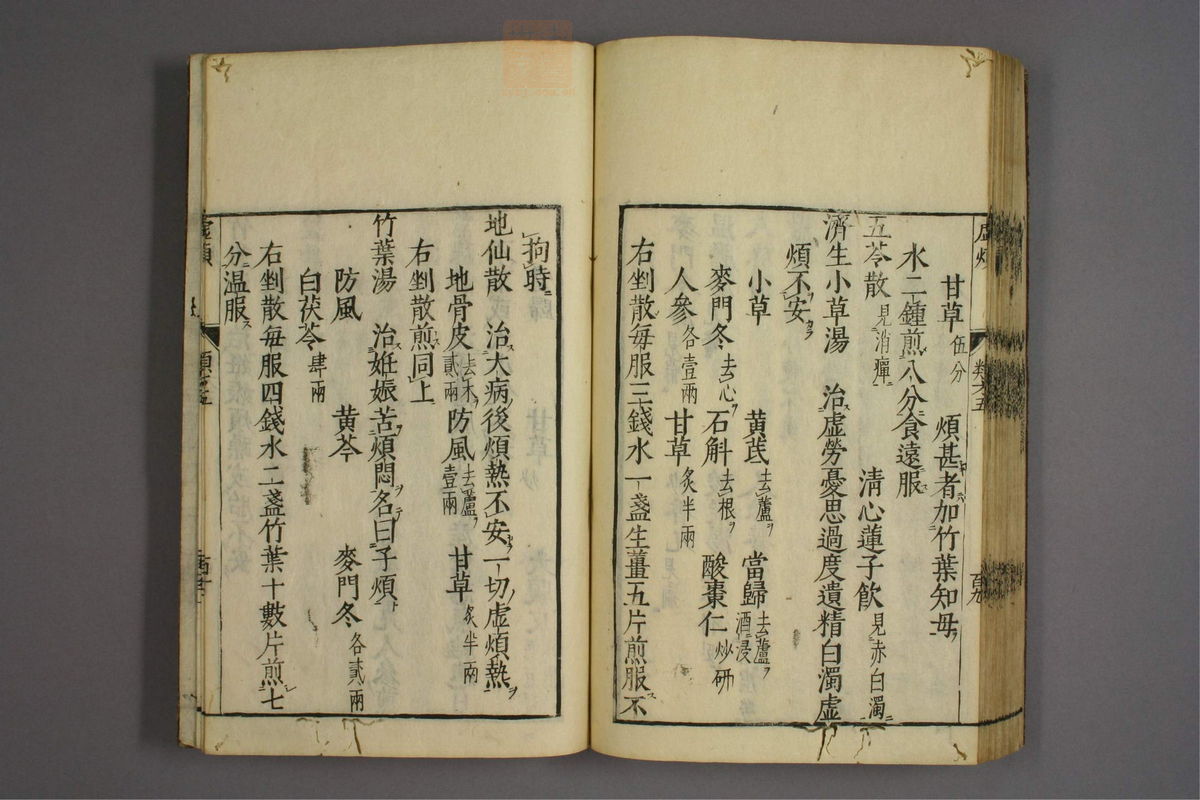 甘草伍分 煩甚者加竹葉知母
水二鍾煎八分食遠服
五苓散見消癉 清心蓮子飲見赤白濁
濟生小草湯 治虛勞憂思過度遺精白濁虛
煩不安
小草 黃芪去蘆 當歸去蘆酒浸
麥門冬去心 石斛去根 酸棗仁炒研
人參各壹兩 甘草炙半兩
右剉散每服三錢水一盞生薑五片煎服不
拘時
地仙散 治大病後煩熱不安一切虛煩熱
地骨皮去木貳兩 防風去蘆壹兩 甘草炙半兩
右剉散煎同上
竹葉湯 治姙娠苦煩悶名曰子煩
防風 黃芩 麥門冬各貳兩
白茯苓肆兩
右剉散每服四錢水二盞竹葉十數片煎七
分溫服
虛煩